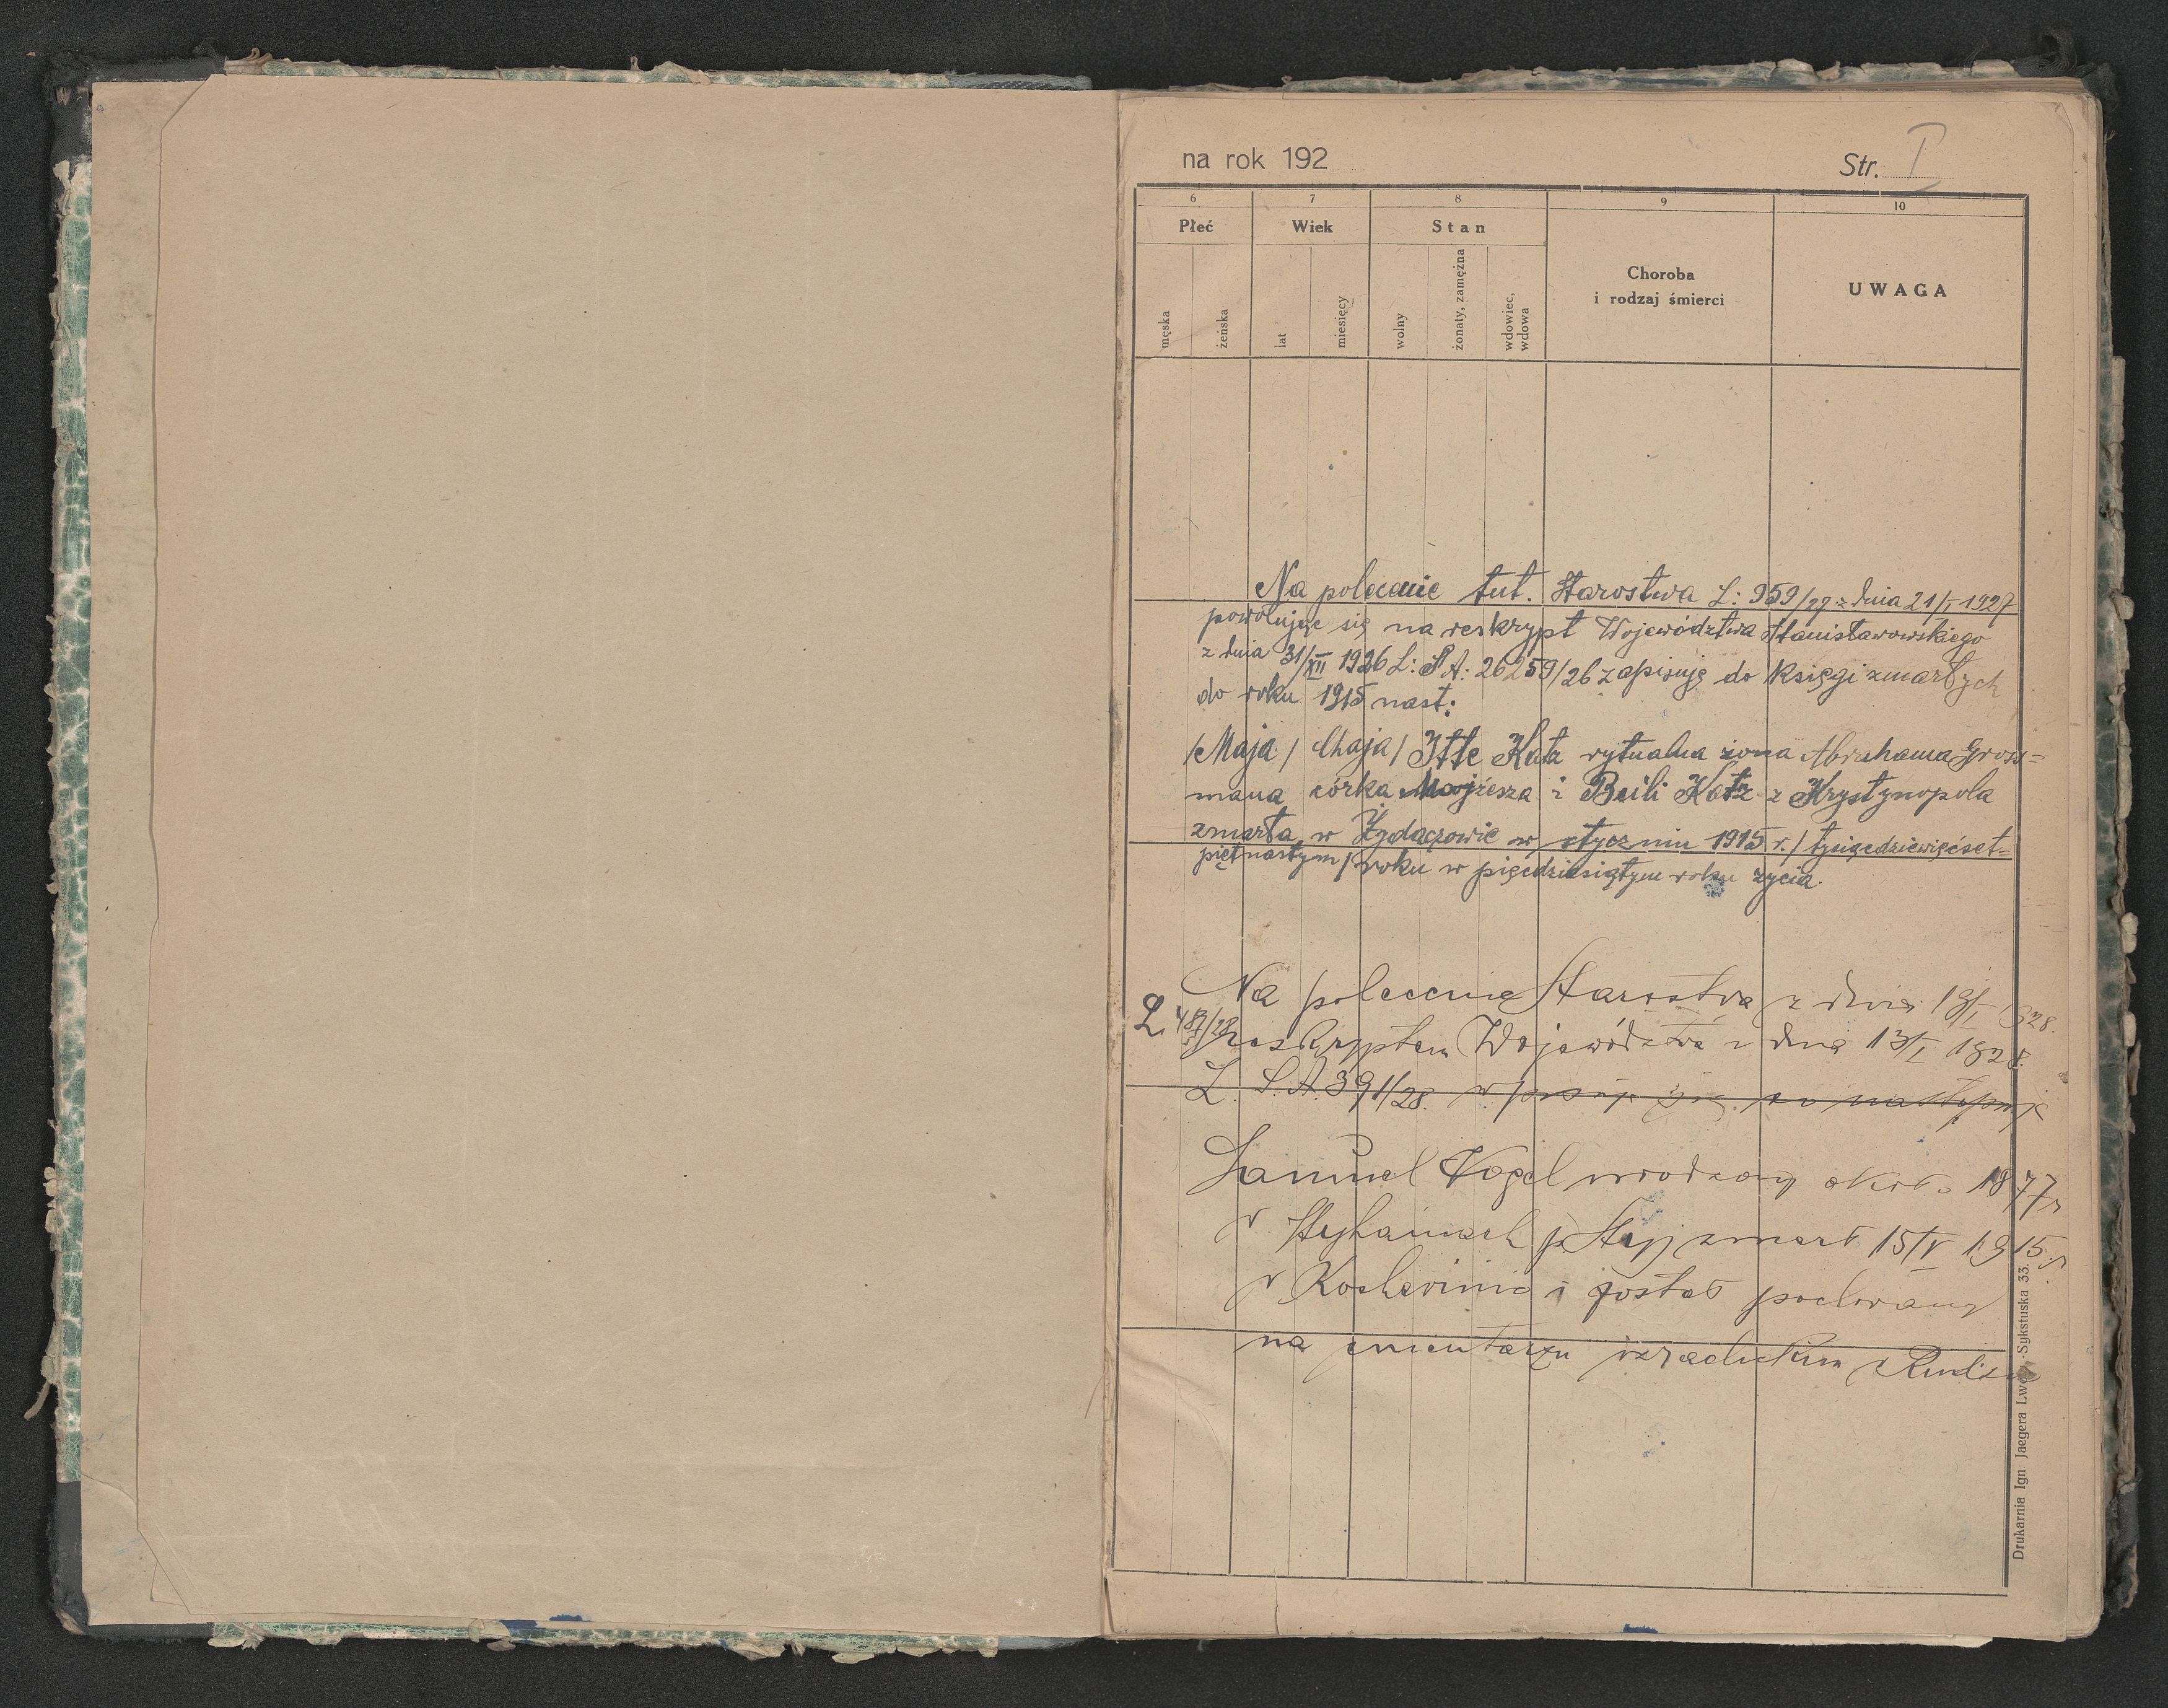 na rok 192
Str. I
6 7 8 9 10
Płeć Wiek Stan
Choroba
i rodzaj śmierci
UWAGA
męska żeńska lat miesięcy wolny żonaty, zamężna wdowiec, wdowa
Na polecenie tut. Starostwa L: 959/27 z dnia 21/I 1927
powołując się na reskrypt Województwa Stanisławowskiego
z dnia 31/XII 1926 L: S A: 26259/26 zapisuję do księgi zmarłych
do roku 1915 nast:
/Maja/ Chaja/ Itte Katz rytualna żona Abrahama Gross=
mana córka Mojżesza i Beili Katz z Krystynopola
zmarła w Żydaczowie w styczniu 1915 r./ tysiącdziewięćset=
piętnastym/ roku w pięćdziesiątym roku życia.
Na polecenie Starostwa z dnia 19/I 1928.
L. 487/28 reskryptem Województwa z dnia 13/I 1928.
L. S.A. 391/28. wpisuje się co następuje
Samuel Vogel urodzony około 1877 r
w p Stryj zmarł 15/V 1915 r.
w Kochawinie i został pochowany
na cmentarzu izraelickim w
Drukarnia Ign Jaegera Lwów, Sykstuska 33.